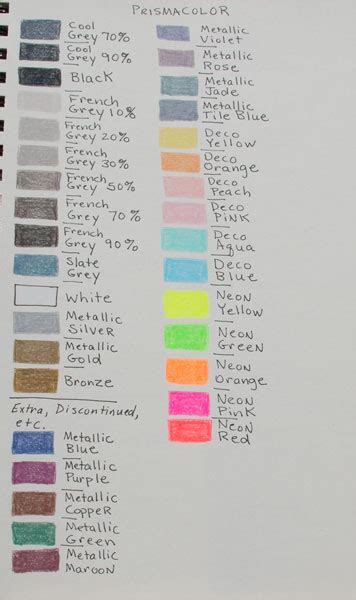 PRISMACOLOR
Cool
Grey 70%
Cool
Grey 90%
Black
French
Grey 10%
French
Grey 20%
French
Grey 30%
French
Grey 50%
French
Grey 70%
French
Grey 90%
Slate
Grey
White
Metallic
Silver
Metallic
Gold
Bronze
Extra, Discontinued,
etc.
Metallic
Blue
Metallic
Purple
Metallic
Copper
Metallic
Green
Metallic
Maroon
Metallic
Violet
Metallic
Rose
Metallic
Jade
Metallic
Tile Blue
Deco
Yellow
Deco
Orange
Deco
Peach
Deco
Pink
Deco
Aqua
Deco
Blue
Neon
Yellow
Neon
Green
Neon
Orange
Neon
Pink
Neon
Red